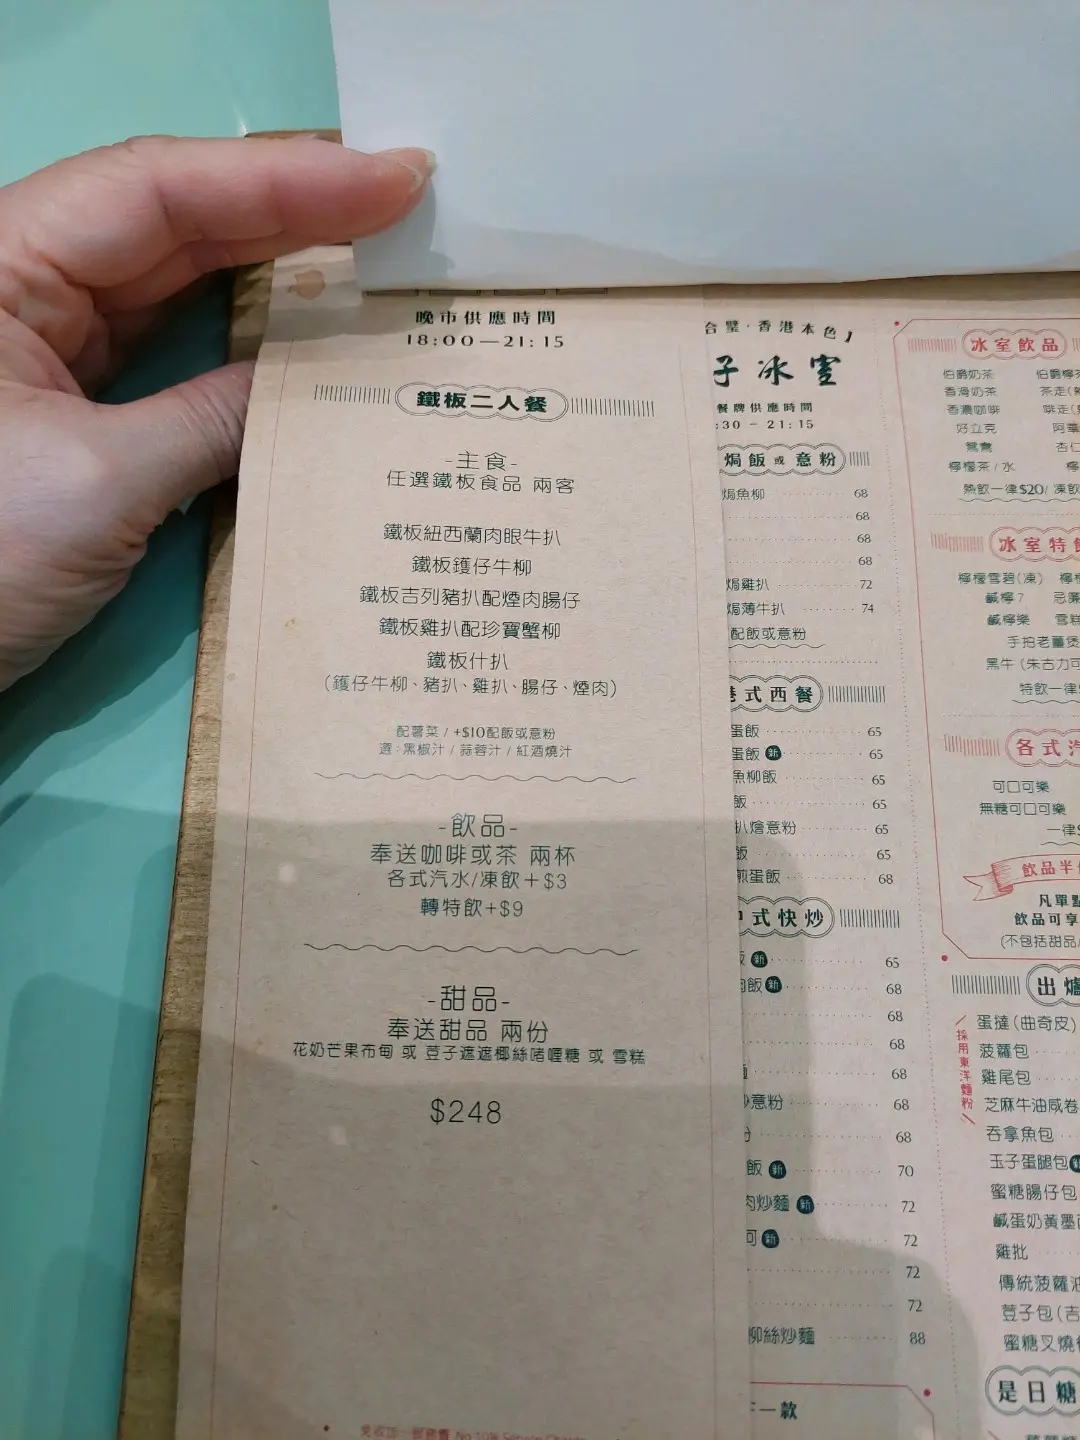 晚市供應時間
18:00—21:15
鐵板二人餐
-主食-
任選鐵板食品 兩客
鐵板紐西蘭肉眼牛扒
鐵板鑊仔牛柳
鐵板吉列豬扒配煙肉腸仔
鐵板雞扒配珍寶蟹柳
鐵板什扒
(鑊仔牛柳、豬扒、雞扒、腸仔、煙肉)
配薯菜 / +$10配飯或意粉
選:黑椒汁 / 蒜蓉汁 / 紅酒燒汁
-飲品-
奉送咖啡或茶 兩杯
各式汽水/凍飲+$3
轉特飲+$9
-甜品-
奉送甜品 兩份
花奶芒果布甸 或 荳子遮遮椰絲啫喱糖 或 雪糕
$248
合璧·香港本色】
子冰室
餐牌供應時間
:30 - 21:15
焗飯或意粉
焗魚柳 68
68
68
68
焗雞扒 72
焗薄牛扒 74
配飯或意粉
港式西餐
蛋飯 65
蛋飯 新 65
魚柳飯 65
飯 65
扒燴意粉 65
飯 65
煎蛋飯 68
中式快炒
飯 新 65
肉飯 新 68
68
68
麵 68
炒意粉 68
68
飯 新 70
肉炒麵 新 72
河 新 72
72
72
柳絲炒麵 88
一款
冰室飲品
伯爵奶茶 伯爵檸茶
香滑奶茶 茶走(
香濃咖啡 啡走(
好立克 阿華
鴛鴦 杏仁
檸檬茶 / 水 檸
熱飲一律$20/ 凍飲
冰室特飲
檸檬雪碧(凍) 檸
鹹檸7 忌廉
鹹檸樂 雪糕
手拍老薑煲
黑牛 (朱古力可
特飲一律
各式汽
可口可樂
無糖可口可樂
一律$
飲品半
凡單點
飲品可享
(不包括甜品
出爐
採用東洋麵粉
蛋撻(曲奇皮)
菠蘿包
雞尾包
芝麻牛油咸卷
吞拿魚包
玉子蛋腿包 新
蜜糖腸仔包
鹹蛋奶黃墨
雞批
傳統菠蘿油
荳子包(吉
蜜糖叉燒餐
是日糖